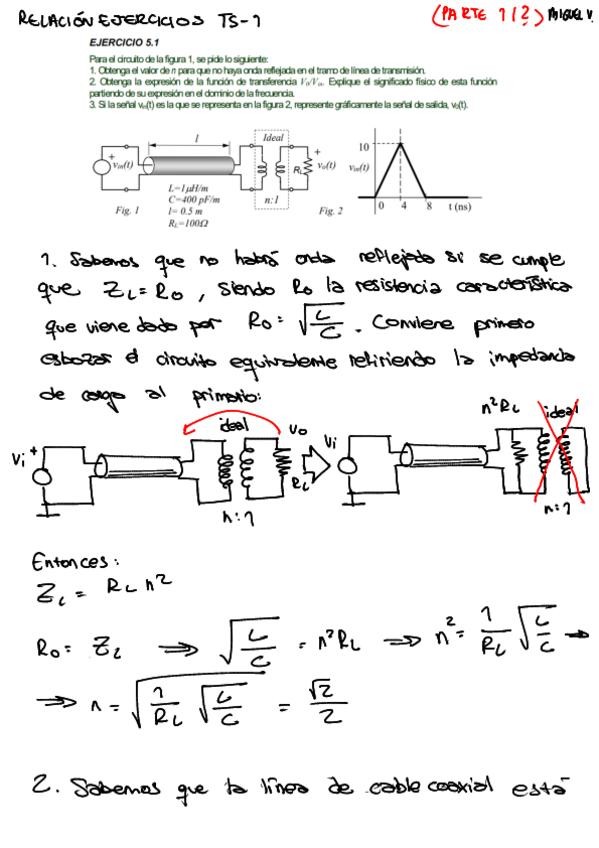 RELACIÓN EJERCICIOS TS-1 (PARTE 1/2) MIGUEL V.
EJERCICIO 5.1
Para el circuito de la figura 1, se pide lo siguiente:
1. Obtenga el valor de n para que no haya onda reflejada en el tramo de línea de transmisión.
2. Obtenga la expresión de la función de transferencia Vₒ/Vᵢₙ. Explique el significado físico de esta función
partiendo de su expresión en el dominio de la frecuencia.
3. Si la señal vᵢₙ(t) es la que se representa en la figura 2, represente gráficamente la señal de salida, v₀(t).
l Ideal
+ vᵢₙ(t) RL + vₒ(t) vᵢₙ(t) 10
L=1μH/m n:1 0 4 8 t (ns)
C=400 pF/m
Fig. 1 l= 0.5 m Fig. 2
RL=100Ω
1. Sabemos que no habrá onda reflejada si se cumple
que ZL = R0 , siendo R0 la resistencia característica
que viene dado por R0 = √(L/C) . Conviene primero
esbozar el circuito equivalente refiriendo la impedancia
de carga al primario:
ideal Vo n²RL ideal
Vi + RL Vi
n:1 n:1
Entonces:
ZL = RL n²
R0 = ZL ⟹ √(L/C) = n²RL ⟹ n² = 1/RL √(L/C) →
⟹ n = √(1/RL √(L/C)) = √2/2
2. Sabemos que la línea de cable coaxial está